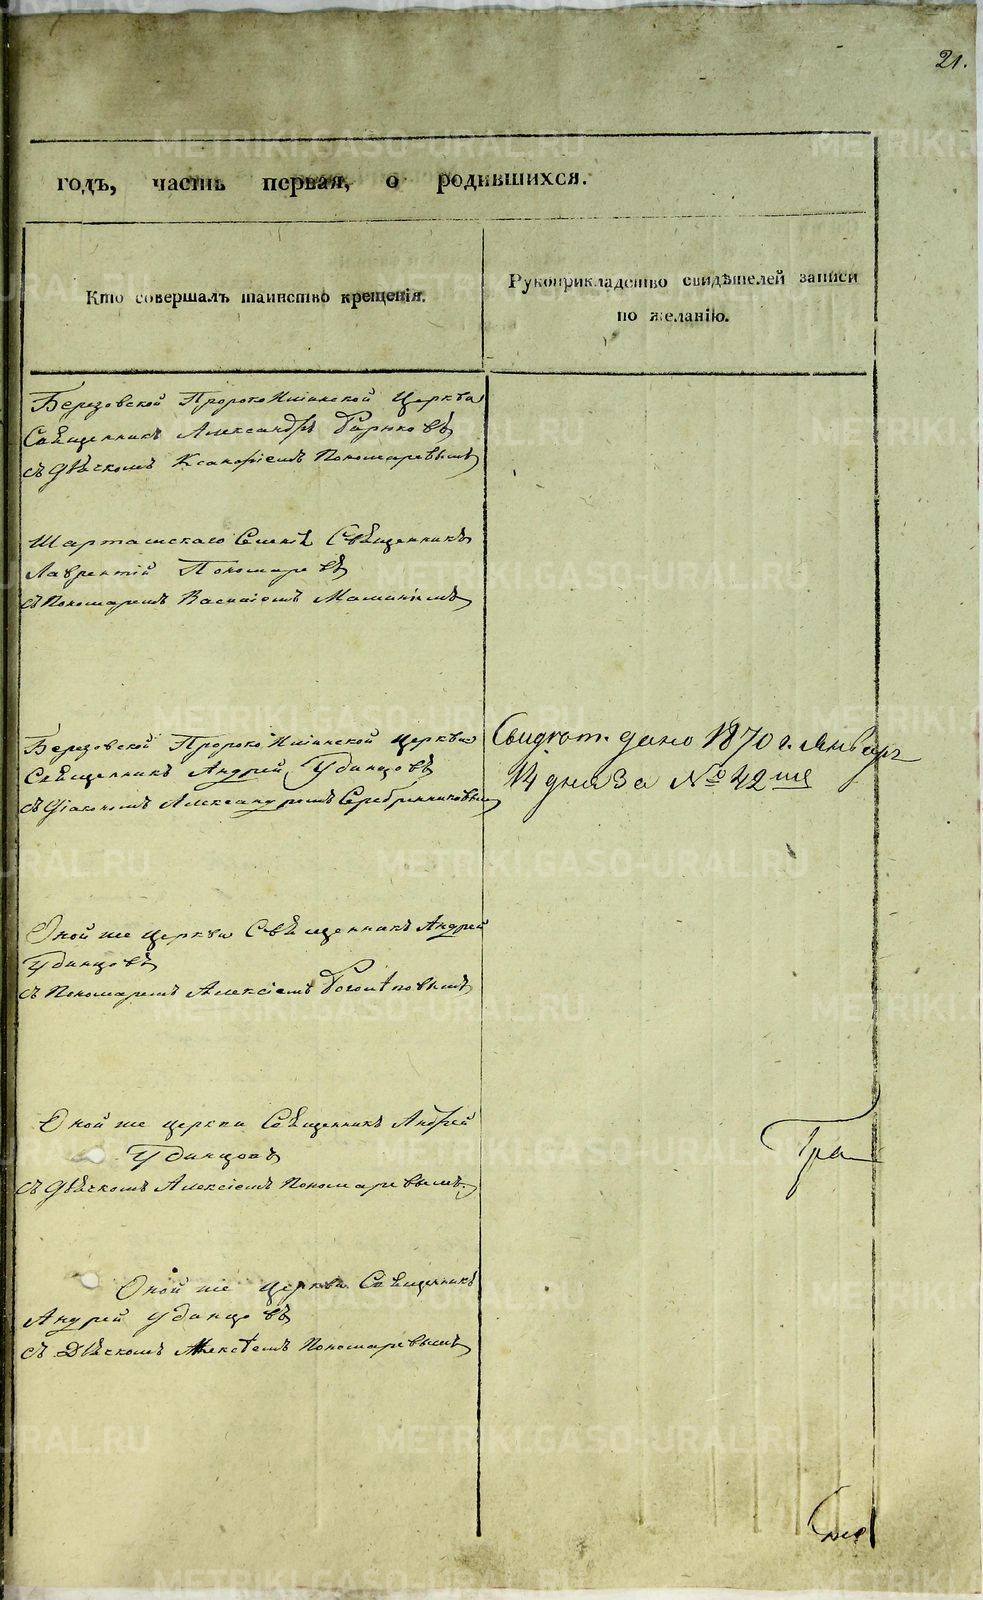 21.
годъ, часть первая, о родившихся.
Кто совершалъ таинство крещенія.
Рукоприкладство свидѣтелей записи
по желанію.
Березовской Пророко Ильинской Церкви
Священникъ Александръ
съ Дьячкомъ Пономаревымъ
Шарташскаго Селенія Священникъ
Лаврентій Пономаревъ
съ Пономаремъ Василіемъ Маминымъ
Березовской Пророко Ильинской Церкви
Священникъ Андрей Удинцовъ
съ Діакономъ Александромъ Серебренниковымъ
Свидѣт. дано 1870 г. Январ
14 дня За № 42 мъ
Оной же церкви Священникъ Андрей
Удинцовъ
съ Пономаремъ Алексіемъ
Оной же церкви Священникъ Андрей
Удинцовъ
съ Дьячкомъ Алексіемъ Пономаревымъ
Оной же церкви Священникъ
Андрей Удинцовъ
съ Дьячкомъ Алексіемъ Пономаревымъ
METRIKI.GASO-URAL.RU